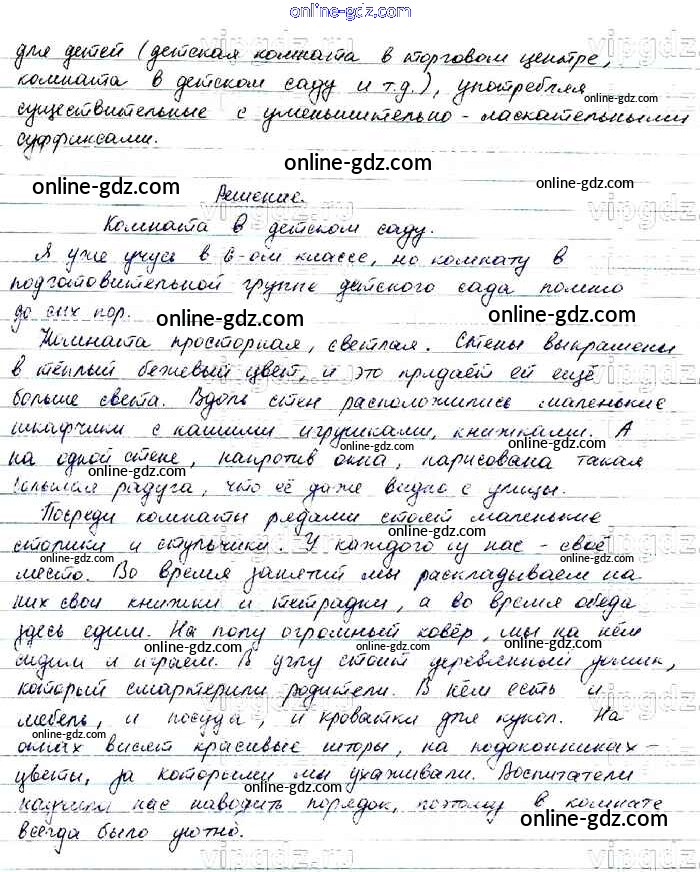 online-gdz.com
для детей (детская комната в торговом центре,
комната в детском саду и т.д.), употребляя
online-gdz.com
существительные с уменьшительно-ласкательными
суффиксами.
online-gdz.com
online-gdz.com
online-gdz.com
Решение.
Комната в детском саду.
Я уже учусь в 6-ом классе, но комнату в
подготовительной группе детского сада помню
до сих пор.
online-gdz.com
online-gdz.com
Комната просторная, светлая. Стены выкрашены
в тёплый бежевый цвет, и это придаёт ей ещё
больше света. Вдоль стен расположились маленькие
шкафчики с нашими игрушками, книжками. А
на одной стене, напротив окна, нарисована такая
большая радуга, что её даже видно с улицы.
Посреди комнаты рядами стоят маленькие
столики и стульчики. У каждого из нас - своё
online-gdz.com
online-gdz.com
место. Во время занятий мы раскладываем на
них свои книжки и тетрадки, а во время обеда
здесь едим. На полу огромный ковёр, мы на нём
online-gdz.com
online-gdz.com
сидим и играем. В углу стоит деревянный домик,
который смастерили родители. В нём есть и
мебель, и посуда, и кроватки для кукол. На
online-gdz.com
окнах висят красивые шторы, на подоконниках -
online-gdz.com
цветы, за которыми мы ухаживали. Воспитатели
online-gdz.com
научили нас наводить порядок, поэтому в комнате
online-gdz.com
всегда было уютно.
online-gdz.com
vipgdz.ru